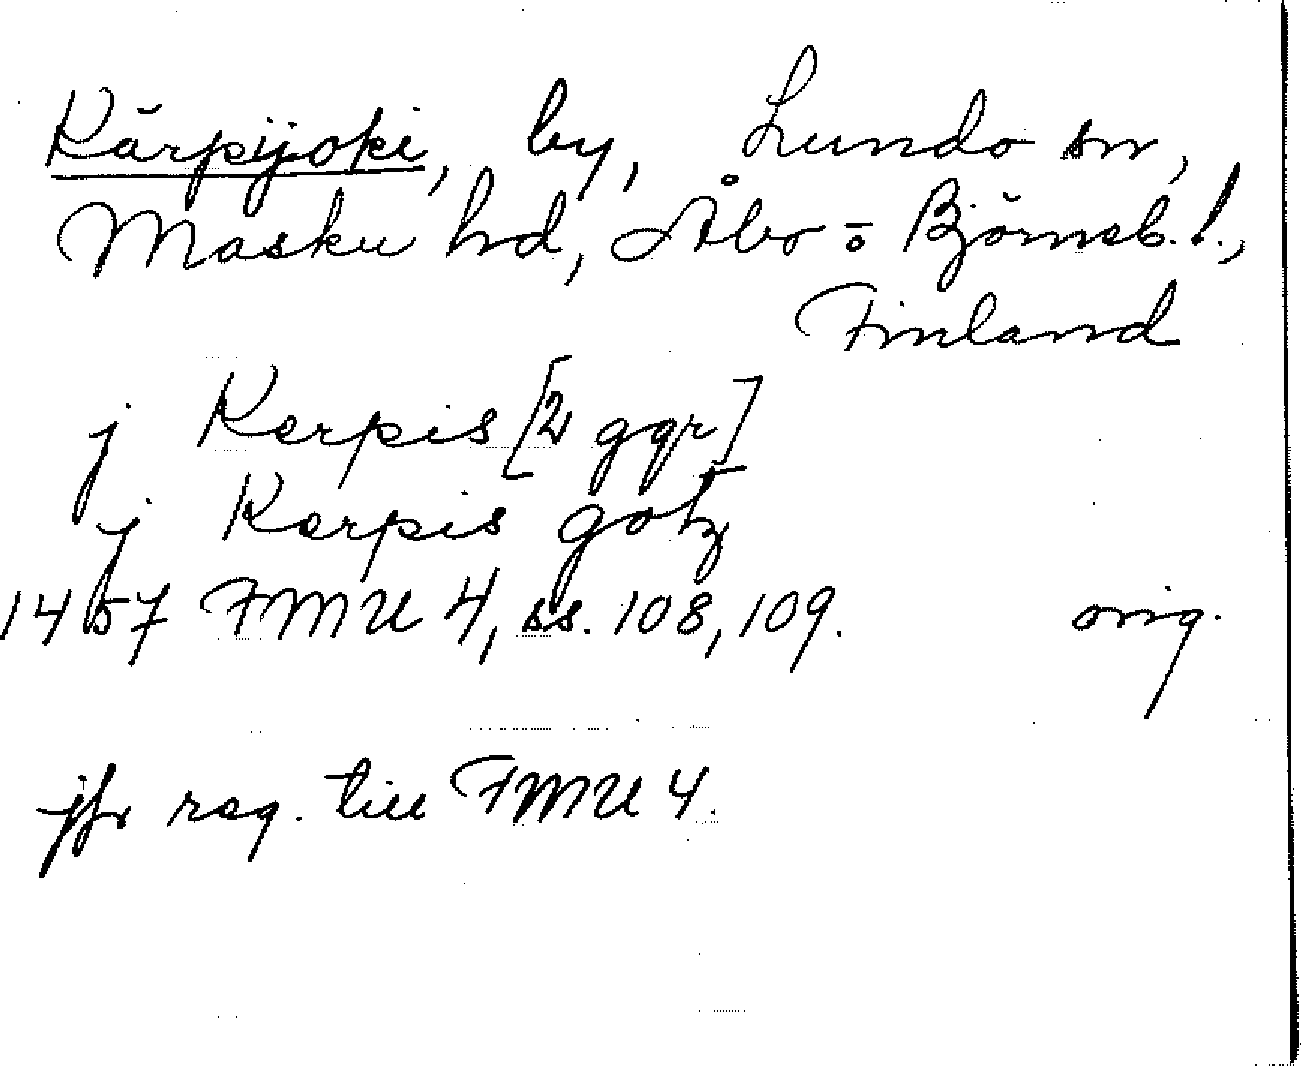 Kärpijoki, by, Lundo sn,
Masku hd, Åbo o Björneb. l.,
Finland
j Kerpis [2 ggr]
j Kerpis gotz
1457 FMU 4, ss. 108, 109. orig.
jfr reg. till FMU 4.